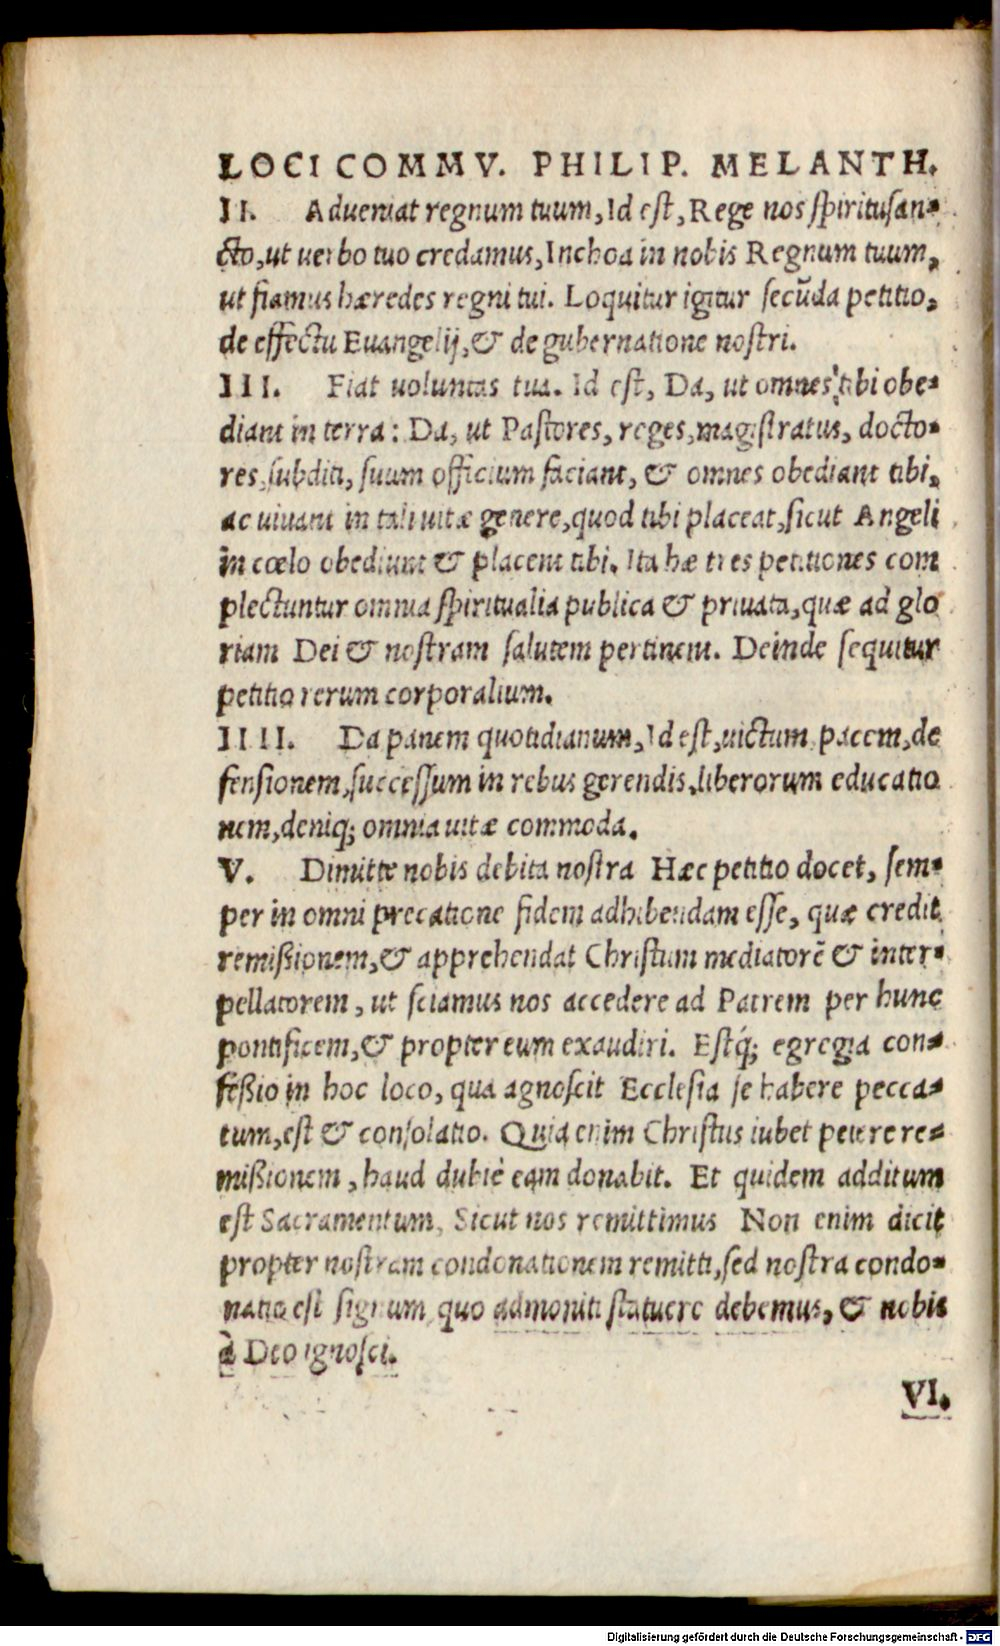 LOCI COMMV. PHILIP. MELANTH.
II. Adueniat regnum tuum, Id est, Rege nos spiritusan-
cto, ut uerbo tuo credamus, Inchoa in nobis Regnum tuum,
ut fiamus hæredes regni tui. Loquitur igitur secūda petitio,
de effectu Euangelij, & de gubernatione nostri.
III. Fiat uoluntas tua. Id est, Da, ut omnes tibi obe-
diant in terra: Da, ut Pastores, reges, magistratus, docto-
res, subditi, suum officium faciant, & omnes obediant tibi,
ac uiuant in tali uitæ genere, quod tibi placeat, sicut Angeli
in cœlo obediunt & placent tibi. Ita hæ tres petitiones com
plectuntur omnia spiritualia publica & priuata, quæ ad glo
riam Dei & nostram salutem pertinent. Deinde sequitur
petitio rerum corporalium.
IIII. Da panem quotidianum, Id est, uictum, pacem, de
fensionem, successum in rebus gerendis, liberorum educatio
nem, deniq; omnia uitæ commoda.
V. Dimitte nobis debita nostra Hæc petitio docet, sem-
per in omni precatione fidem adhibendam esse, quæ credit
remißionem, & apprehendat Christum mediatorē & inter-
pellatorem, ut sciamus nos accedere ad Patrem per hunc
pontificem, & propter eum exaudiri. Estq́; egregia con-
feßio in hoc loco, qua agnoscit Ecclesia se habere pecca-
tum, est & consolatio. Quia enim Christus iubet petere re-
mißionem, haud dubiè eam donabit. Et quidem additum
est Sacramentum, Sicut nos remittimus Non enim dicit
propter nostram condonationem remitti, sed nostra condo-
natio est signum quo admoniti statuere debemus, & nobis
à Deo ignosci.
VI.
Digitalisierung gefördert durch die Deutsche Forschungsgemeinschaft - DFG